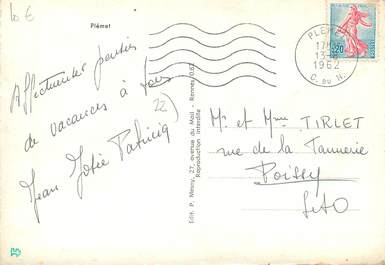 10 €
Plémet
Affectueuses pensées
de vacances à tous
Jean José Patricia
22)
Edit. P. Mesny, 27, avenue du Mail - Rennes
Reproduction interdite
PLEMET
17H
13-
1962
C. DU N.
0,20
Mr et Mme TIRLET
rue de la Tannerie
Poissy
S et O